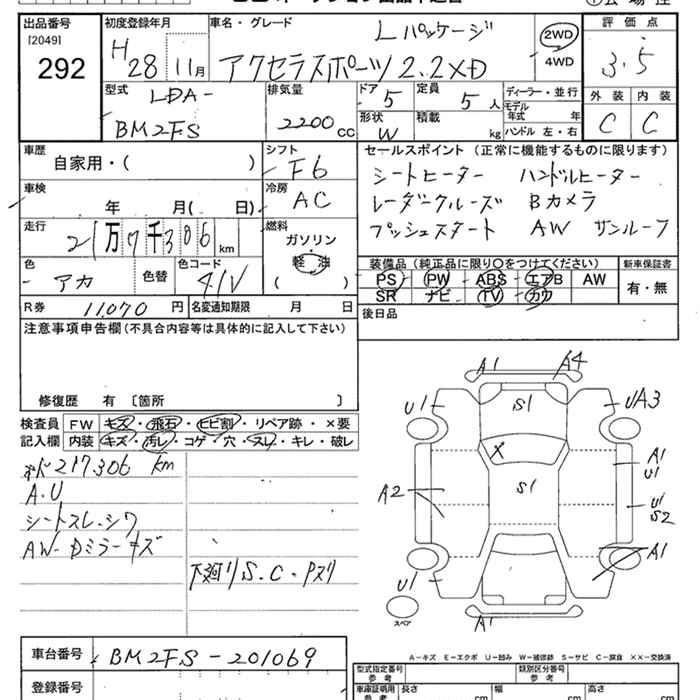 出品番号 初度登録年月 車名・グレード Lパッケージ 2WD 評価点
[2049]
292 H28 11月 アクセラスポーツ 2.2XD 4WD 3.5
型式 排気量 ドア 定員 ディーラー・並行 外装 内装
LDA- 5 5人 モデル年式 年
BM2FS 2200cc 形状 W 積載 kg ハンドル 左・右 C C
車歴 シフト セールスポイント(正常に機能するものに限ります)
自家用・( ) F6 シートヒーター ハンドルヒーター
車検 冷房 レーダークルーズ Bカメラ
年 月( 日) AC プッシュスタート AW サンルーフ
走行 燃料
21万7千306km ガソリン
軽油
色 色替 色コード ( ) 装備品(純正品に限り○をつけてください) 新車保証書
アカ 41V PS PW ABS エアB AW 有・無
SR ナビ TV カワ
R券 11,070円 名変通知期限 月 日 後日品
注意事項申告欄(不具合内容等は具体的に記入して下さい)
修復歴 有〔箇所 〕
検査員 FW キズ・飛石・ヒビ割・リペア跡・×要
記入欄 内装 キズ・汚レ・コゲ・穴・スレ・キレ・破レ
217,306 km
A.U
シートスレ・シワ
AW-Dミラーキズ
下廻りS.C・Pスリ
A1 A4
U1 S1 UA3
A1
U1
A2 S1 U1
S2
A1
U1
スペア
A1
A-キズ E-エクボ U-凹み W-補修跡 S-サビ C-腐食 XX-交換済
車台番号 BM2FS-201069
型式指定番号 参考 類別区分番号 参考
登録番号 車庫証明用 参考 長さ cm 幅 cm 高さ cm